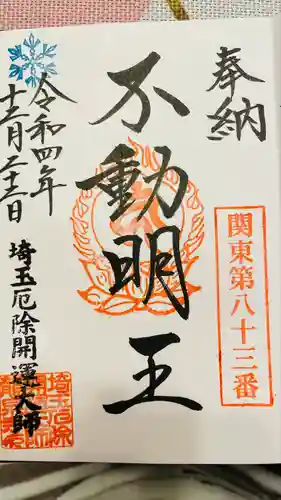 奉納
関東第八十三番
不動明王
令和四年
十二月二十二日
埼玉厄除開運大師